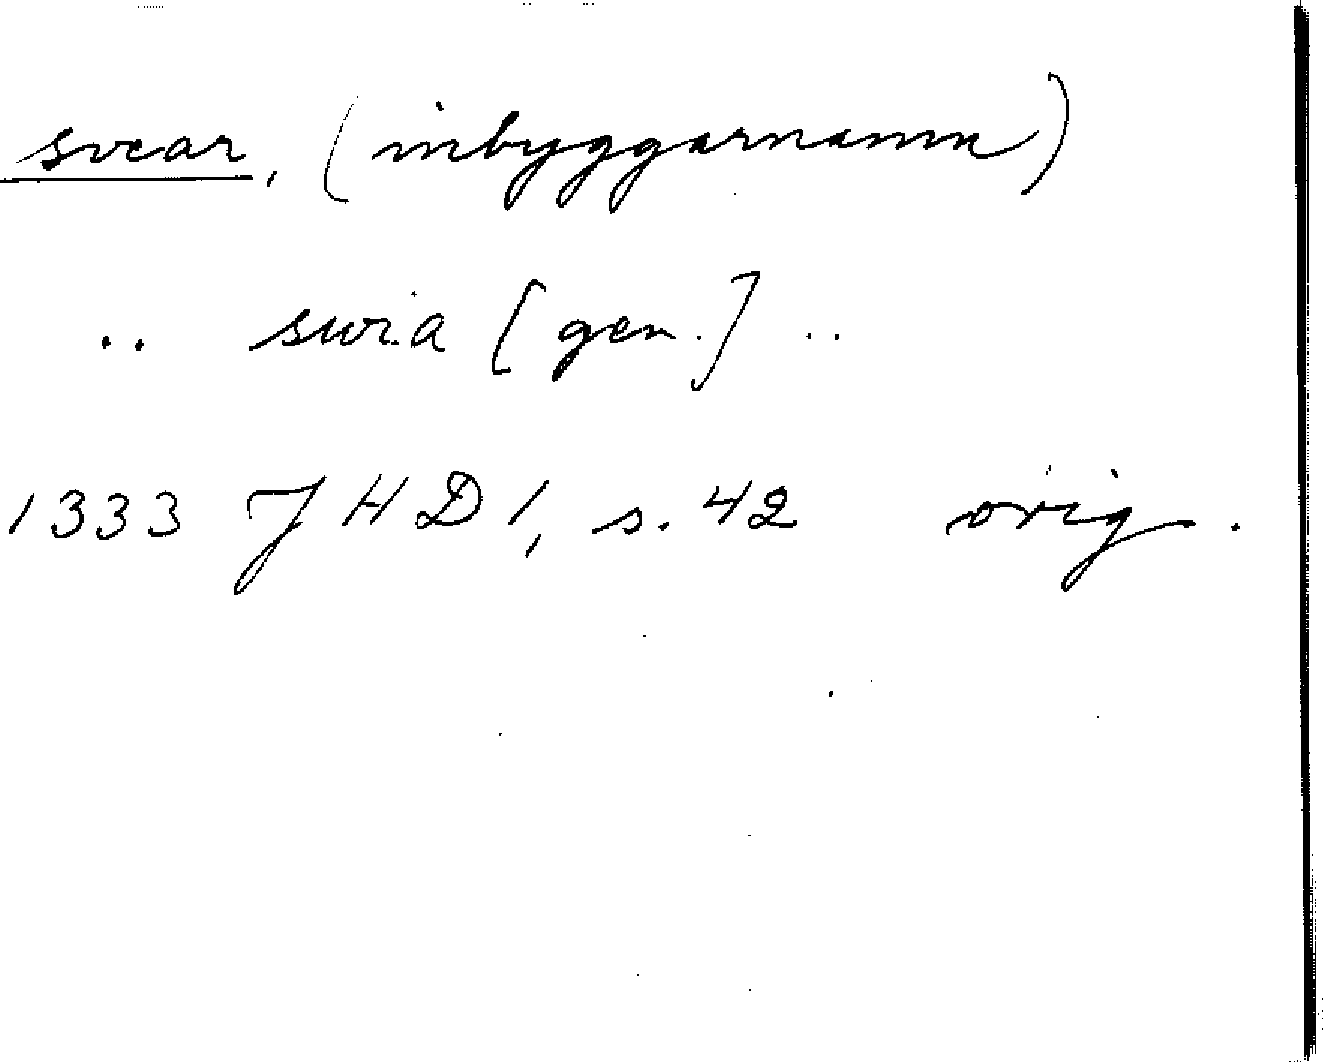 svear, (inbyggarnamn)
.. swia [gen.] ..
1333 JHD1, s. 42 orig.